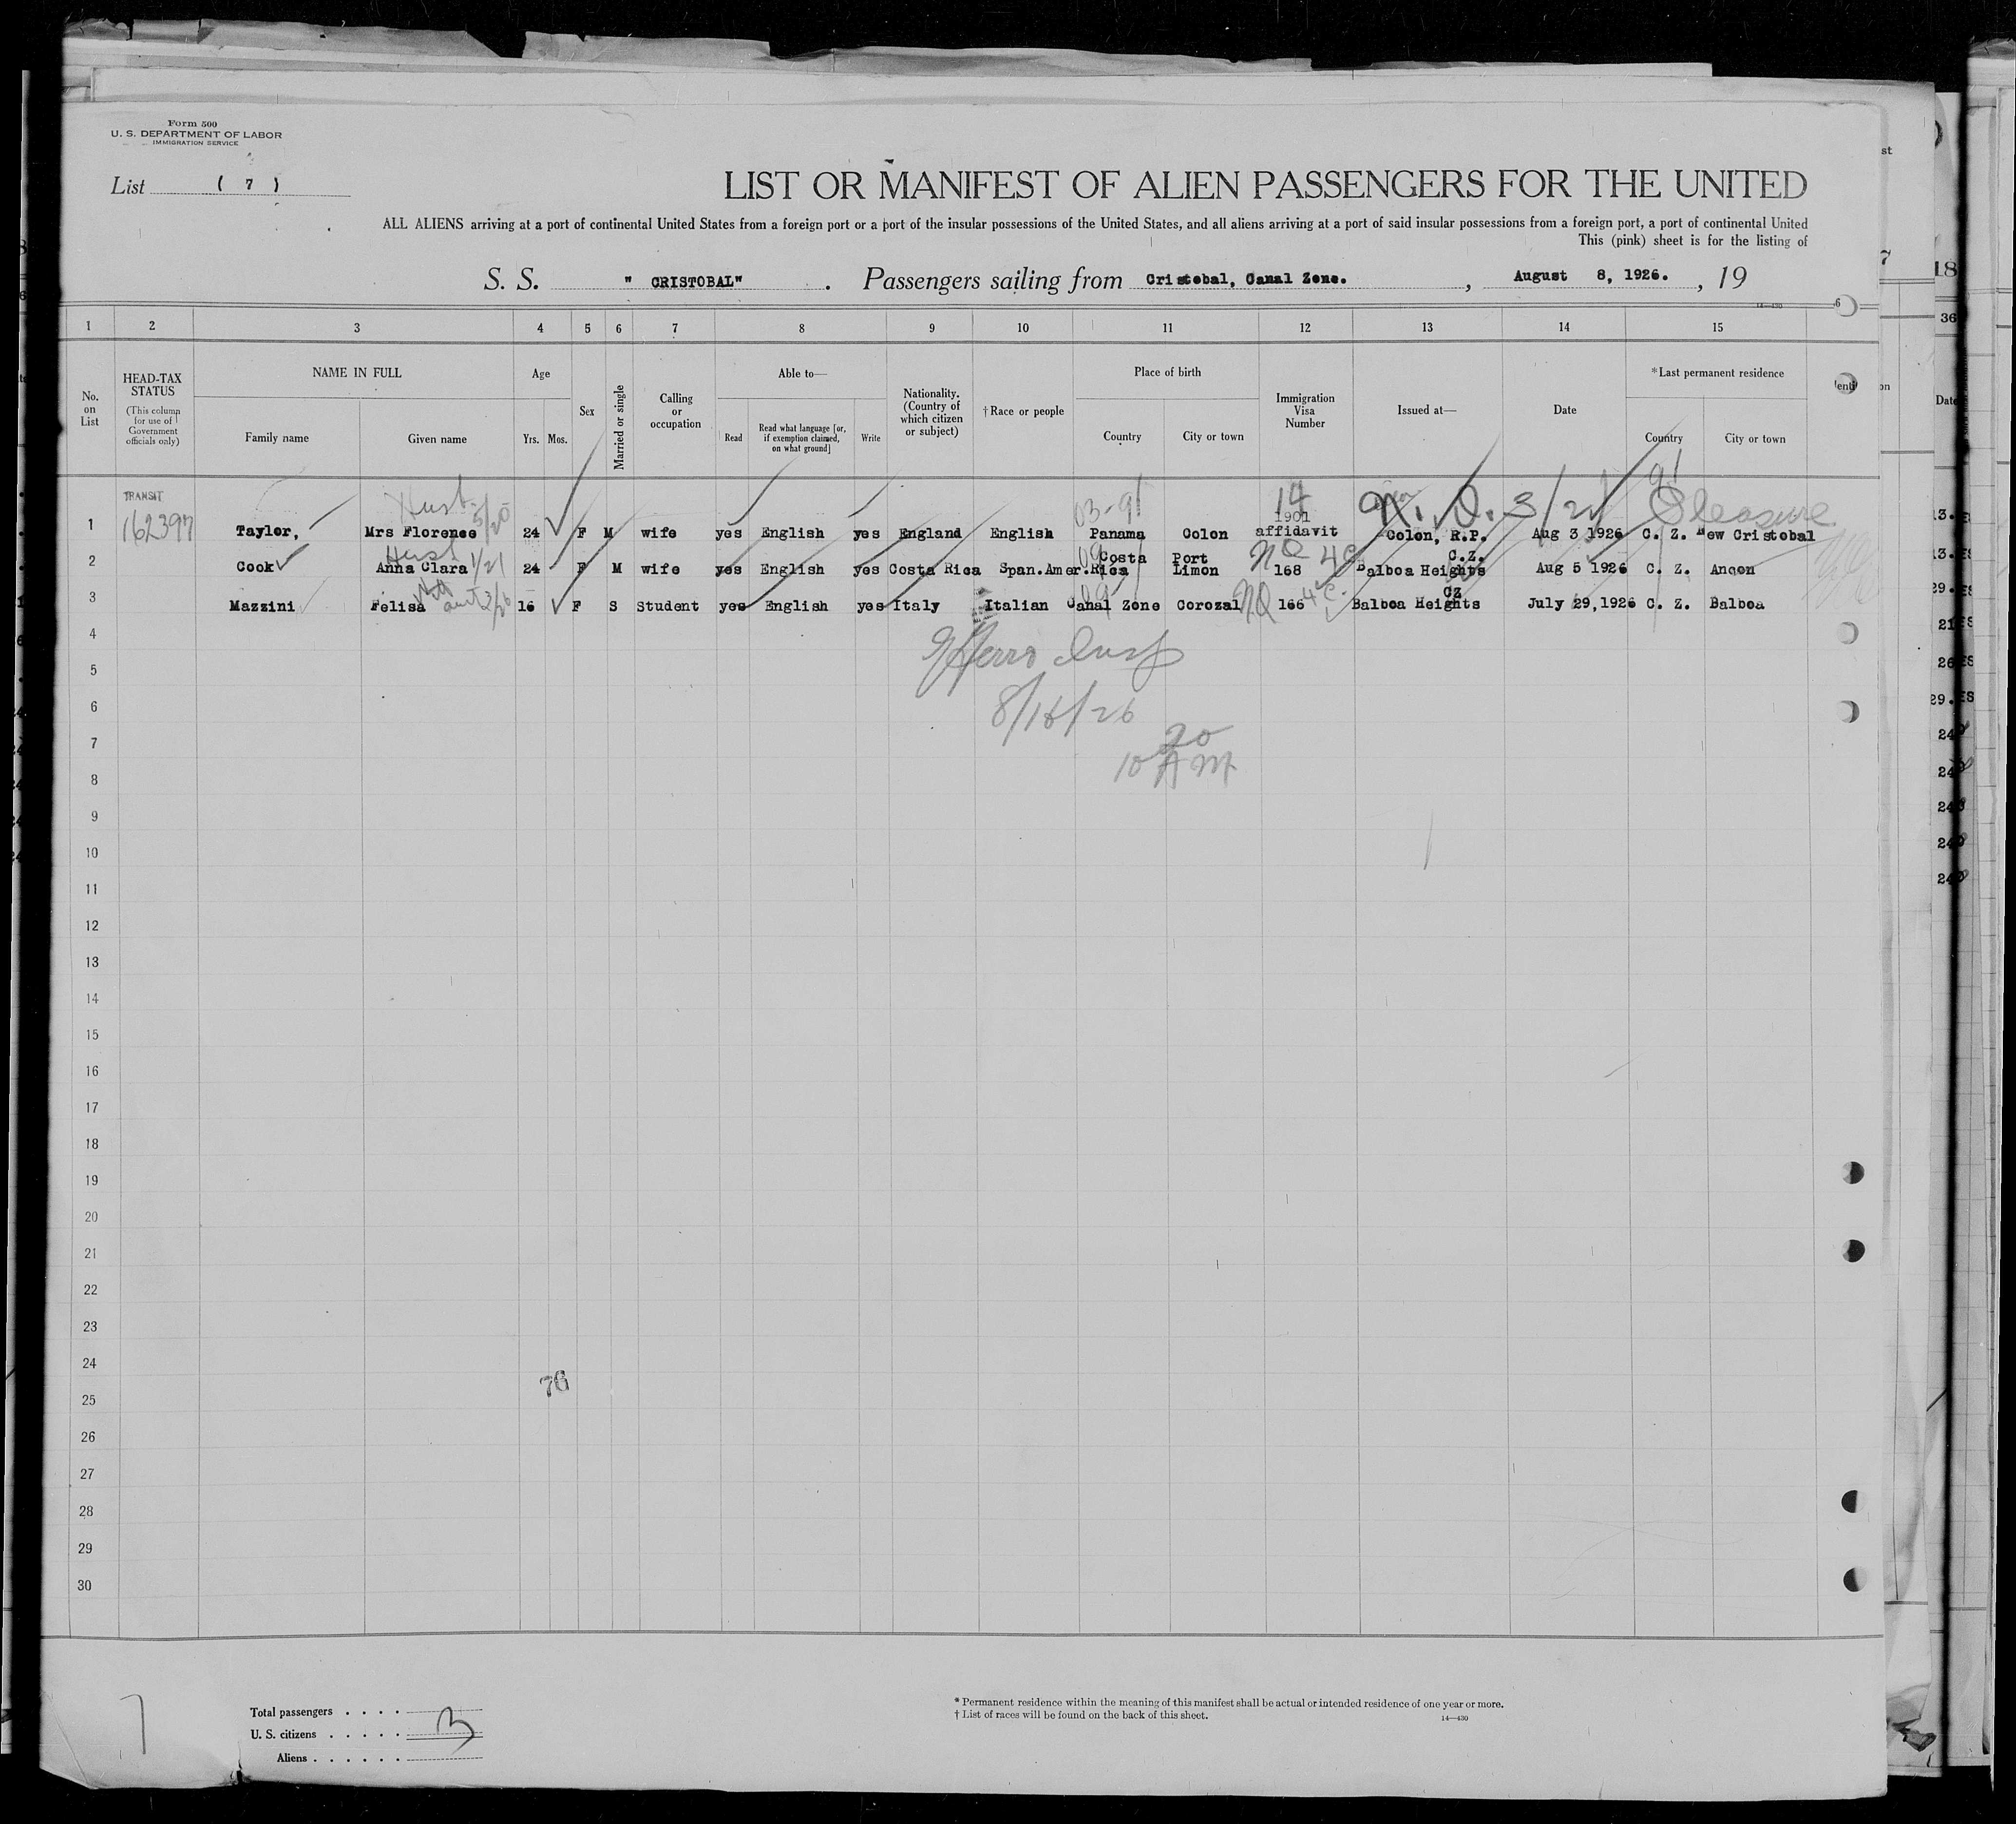 Form 500
U. S. DEPARTMENT OF LABOR
IMMIGRATION SERVICE
List ( 7 )
LIST OR MANIFEST OF ALIEN PASSENGERS FOR THE UNITED
ALL ALIENS arriving at a port of continental United States from a foreign port or a port of the insular possessions of the United States, and all aliens arriving at a port of said insular possessions from a foreign port, a port of continental United
This (pink) sheet is for the listing of
S. S. " CRISTOBAL" . Passengers sailing from Cristobal, Canal Zone. , August 8, 1926. , 19
14—430
1 2 3 4 5 6 7 8 9 10 11 12 13 14 15
No. on List
HEAD-TAX STATUS
(This column for use of Government officials only)
NAME IN FULL
Family name Given name
Age
Yrs. Mos.
Sex
Married or single
Calling or occupation
Able to—
Read
Read what language [or, if exemption claimed, on what ground]
Write
Nationality. (Country of which citizen or subject)
†Race or people
Place of birth
Country City or town
Immigration Visa Number
Issued at—
Date
*Last permanent residence
Country City or town
TRANSIT
162397
Husb 5/20
03-91
14
1901
N. D. 3/2
91
Pleasure
1 Taylor, Mrs Florence 24 F M wife yes English yes England English Panama Colon affidavit Colon, R.P. Aug 3 1926 C. Z. New Cristobal
Husb 1/21
09
NQ 4c
C.Z.
2 Cook Anna Clara 24 F M wife yes English yes Costa Rica Span.Amer. Costa Rica Port Limon 168 Balboa Heights Aug 5 1926 C. Z. Ancon
aunt 2/26
09
NQ 4c.
CZ
3 Mazzini Felisa 16 F S Student yes English yes Italy Italian Canal Zone Corozal 166 Balboa Heights July 29,1926 C. Z. Balboa
4
5
Insp
6
8/16/26
7
20
8
10 AM
9
10
11
12
13
14
15
16
17
18
19
20
21
22
23
24
76
25
26
27
28
29
30
7
Total passengers . . . .
U. S. citizens . . . . . 3
Aliens . . . . . .
* Permanent residence within the meaning of this manifest shall be actual or intended residence of one year or more.
† List of races will be found on the back of this sheet.
14—430